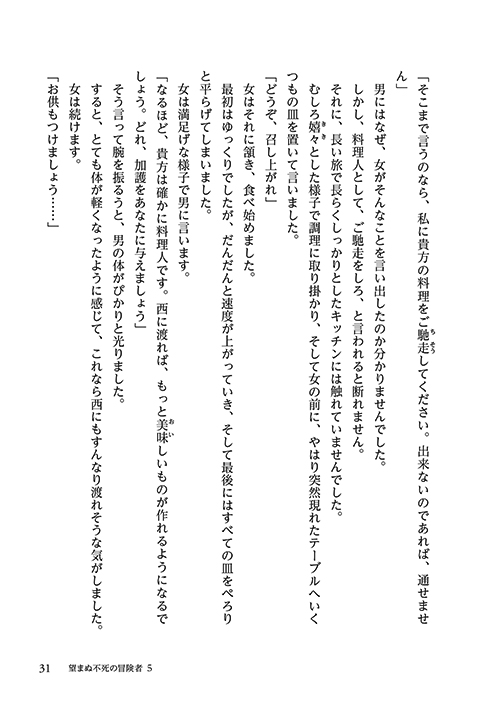 「そこまで言うのなら、私に貴方の料理をご馳走してください。出来ないのであれば、通せませ
ん」
男にはなぜ、女がそんなことを言い出したのか分かりませんでした。
しかし、料理人として、ご馳走をしろ、と言われると断れません。
それに、長い旅で長らくしっかりとしたキッチンには触れていませんでした。
むしろ嬉々とした様子で調理に取り掛かり、そして女の前に、やはり突然現れたテーブルへいく
つもの皿を置いて言いました。
「どうぞ、召し上がれ」
女はそれに頷き、食べ始めました。
最初はゆっくりでしたが、だんだんと速度が上がっていき、そして最後にはすべての皿をぺろり
と平らげてしまいました。
女は満足げな様子で男に言います。
「なるほど、貴方は確かに料理人です。西に渡れば、もっと美味しいものが作れるようになるで
しょう。どれ、加護をあなたに与えましょう」
そう言って腕を振るうと、男の体がぴかりと光りました。
すると、とても体が軽くなったように感じて、これなら西にもすんなり渡れそうな気がしました。
女は続けます。
「お供もつけましょう……」
31 望まぬ不死の冒険者 5